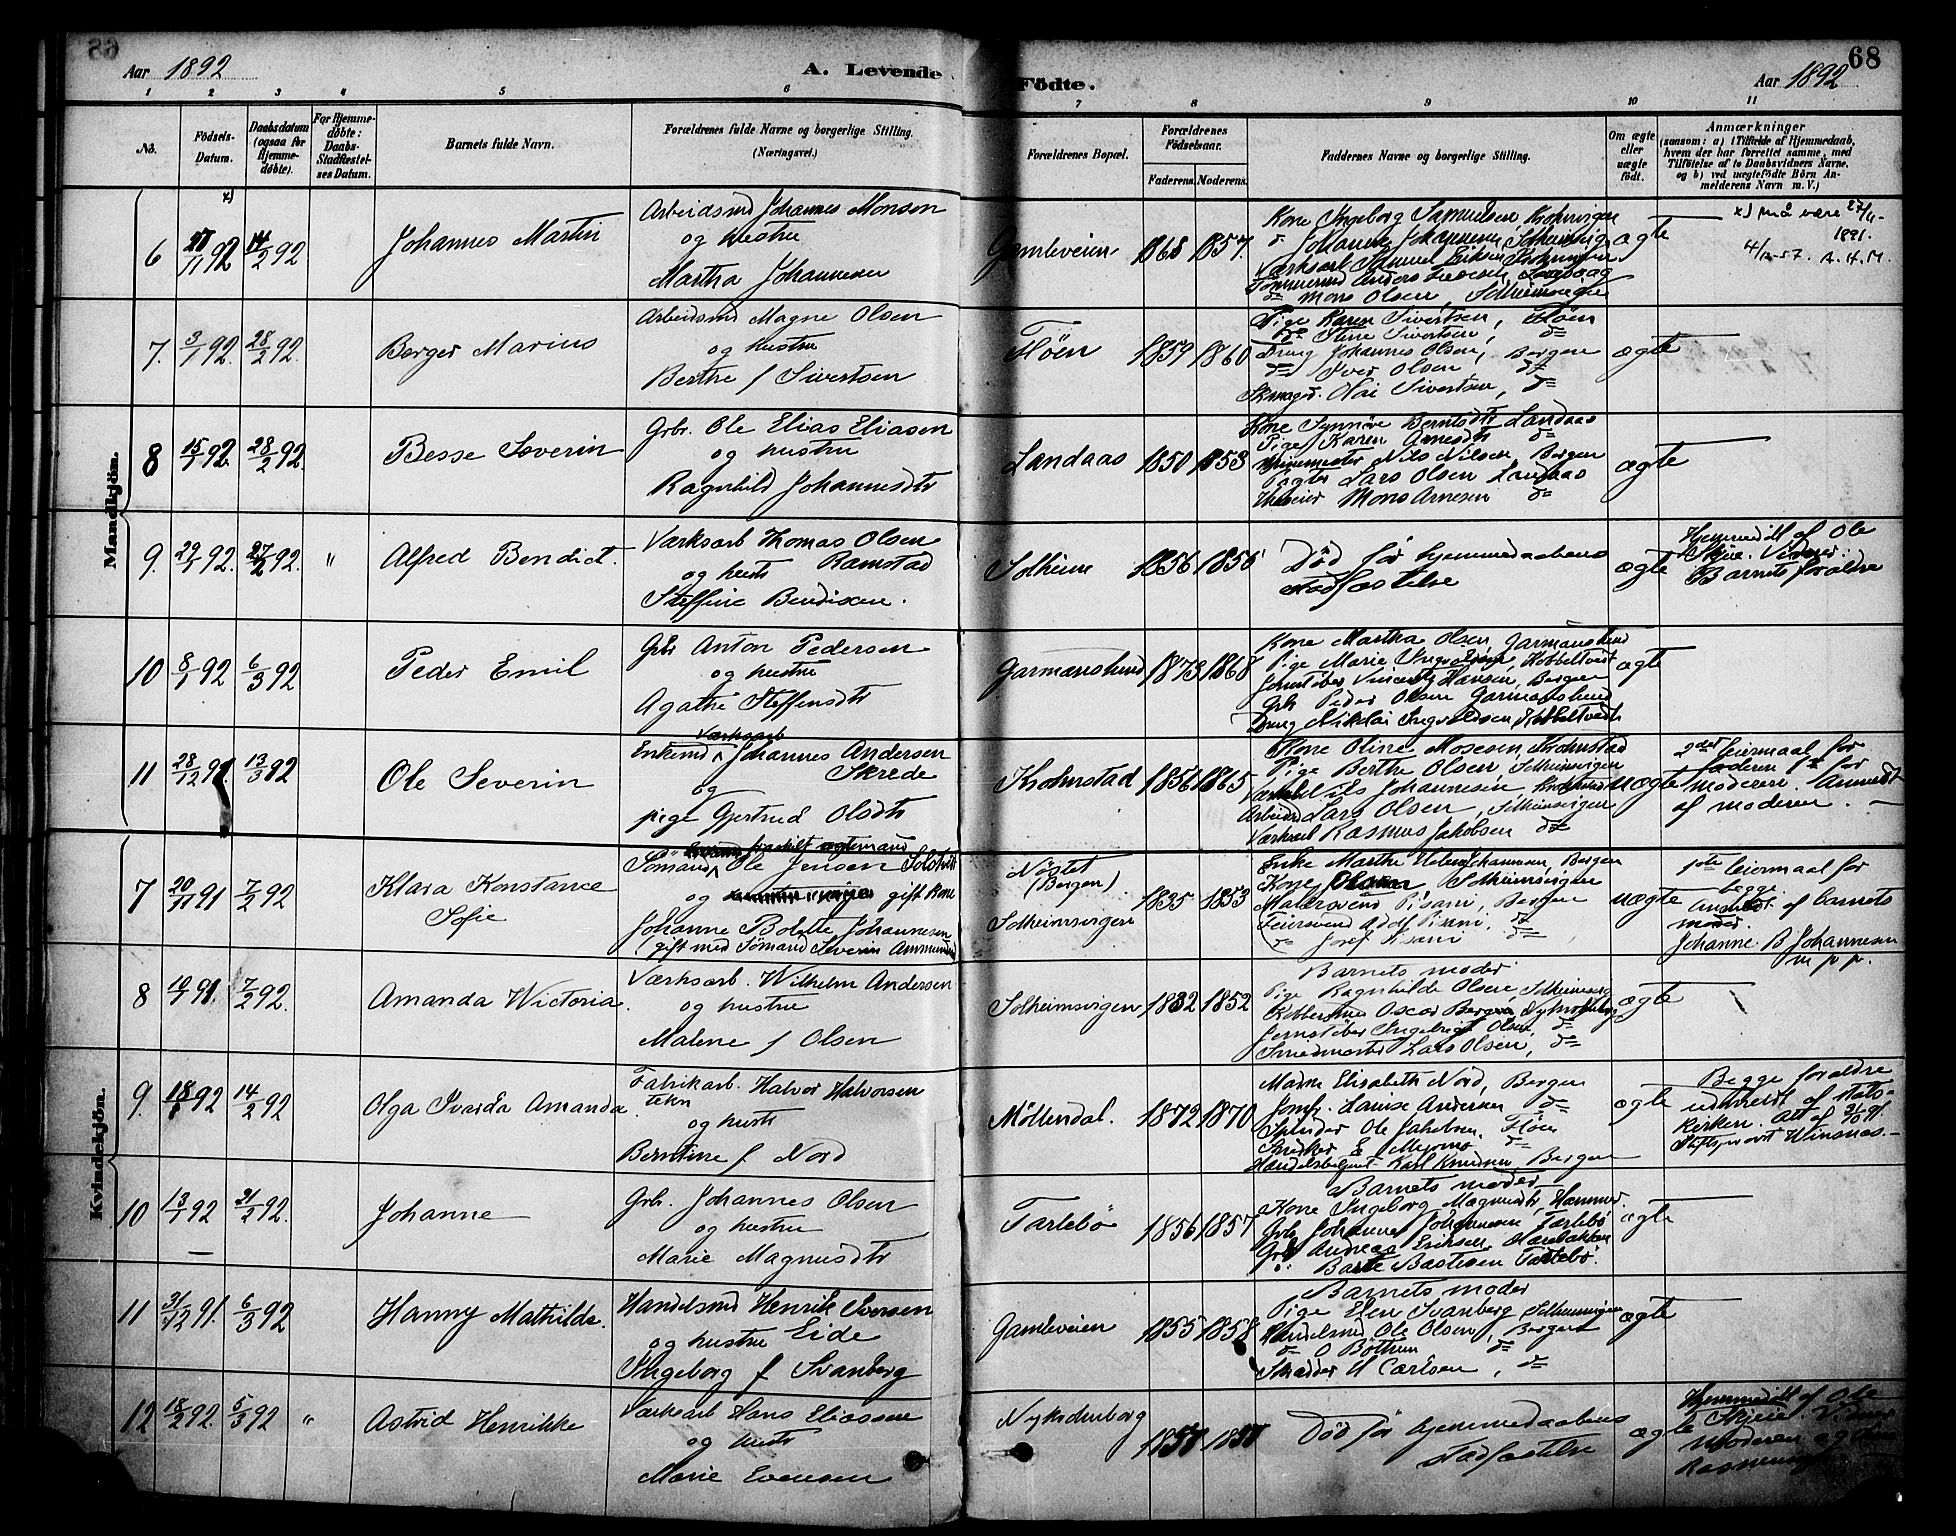 Aar 1892
A. Levende
Födte.
Aar 1892
68
1 2 3 4 5 6 7 8 9 10 11
No.
Födsels-
Datum.
Daabsdatum
(ogsaa for
Hjemme-
døbte).
For Hjemme-
døbte:
Daabs-
Stadfæstel-
ses Datum.
Barnets fulde Navn.
Forældrenes fulde Navne og borgerlige Stilling.
(Næringsvei.)
Forældrenes Bopæl.
Forældrenes
Födselsaar.
Faderens. Moderens.
Faddernes Navne og borgerlige Stilling.
Om ægte
eller
uægte
födt.
Anmærkninger
(saasom: a) i Tilfælde af Hjemmedaab,
hvem der har forrettet samme, med
Tilföielse af to Daabsvidners Navne,
og b) ved uægtefödte Börn An-
melderens Navn m. V.)
Mandkjön.
6 27/11 92 14/2 92
Johannes Martin
Arbeidsmd Johannes Monsen
og hustru
Martha Johannesen
Gamleveien 1868 1857.
Kone Ingeborg Samuelsen, Krohnvigen
do Johanne Johannesen, Solheimsvig
Værksarb. Samuel Eriksen
Mons Olsen, Solheimsvigen
ægte
x) må være 27/11-
1891.
4/12-57. A.H.M.
7. 3/1 92. 28/2 92.
Berger Marius
Arbeidsmd Magne Olsen
og hustru
Berthe f Sivertsen
Flöen 1859 1860
Pige Karen Sivertsen, Flöen
do Stine Sivertsen, do
Dreng Johannes Olsen, Bergen
do Iver Olsen, do
Skomager. Olai Sivertsen, do
ægte
8 15/1 92. 28/2 92
Besse Severin
Grbr. Ole Elias Eliasen
og hustru
Ragnhild Johannesdtr
Landaas 1850 1853
Kone Synnöve Berntsdtr Landaas
Pige Karen Arnesdtr do
Nils Nilsen, Bergen
Lars Olsen Landaas
Mons Arnesen do
ægte
9. 29/1 92. 27/2 92. "
Alfred Bendict.
Værksarb Thomas Olsen
og hustr Ramstad
Steffine Bendixen.
Solheim 1856 1856
Död för hjemmedaabens
stadfæstelse
ægte
Hjemmedöbt af Ole
Skjeie. Vidner:
Barnets forældre
10 8/1 92 6/3 92
Peder Emil
Grbr Anton Pedersen
og hustru
Agathe Steffensdtr
Garmanslund 1873 1868
Kone Martha Olsen, Garmanslund
Pige Marie Hobbeltvedt
Jernstöber Vincents Hansen, Bergen
Grbr Peder Olsen Garmanslund
Dreng Nikolai Ingvaldsen Hobbeltvedt
ægte
11 28/12 91. 13/3 92
Ole Severin
Værksarb
Enkemd Johannes Andersen
Skrede
og
pige Gjertrud Olsdtr
Krohnstad 1856 1865
Kone Oline Mosesen, Krohnstad
Pige Berthe Olsen, Solheimsvigen
Nils Johannesen, Krohnstad
Arbeidsmd Lars Olsen, Solheimsvigen
Værksarb Rasmus Jakobsen do
uægte
2det leiermaal for
faderen 1ste for
moderen. Anmeldt
af moderen.
Kvindekjön.
7 20/11 91 7/2 92
Klara Konstance
Sofie
fraskilt ægtemand
Sömand Ole Jensen Solstvedt
og gift Kone
Johanne Bolette Johannesen
(gift med Sömand Severin Ammundsen
Nöstet
(Bergen)
Solheimsvigen
1835 1853
Enke Marthe Helene Johannesen, Bergen
Kone Solheimsvigen
Malersvend Pisani, Bergen
Feiersvend Adolf Pisani, do
do Josef Pisani, do
uægte
1ste leiermaal for
begge.
Anmeldt af barnets
moder
Johanne B Johannesen
m p p.
8 91. 7/2 92.
Amanda Wictoria.
Værksarb. Wilhelm Andersen
og hustru
Malene f Olsen
Solheimsvigen 1832 1852
Barnets moder
Pige Ragnhilde Olsen, Solheimsvig
Oscar Bergen, Nykronborg
Jernstöber Ingebrigt Olsen, do
Smedmester Lars Olsen, do
ægte
9. 92 14/2 92
Olga Ivarda Amanda
Fabrikarb. Halvor Halvorsen
og hustr
Berntine f Nord
Möllendal. 1872 1870
Madm Elisabeth Nord, Bergen
Jomfr. Louise Andersen do
Ole Jakobsen, Flöen
Snedker E Meyer do
Handelsbetjent Karl Knudsen Bergen
ægte
Begge forældre
udmeldt af stats-
kirken. Att af 31/10 91.
Stiftsprovst Winsnes.-
10 13/1 92 21/2 92.
Johanne
Grbr. Johannes Olsen
og hustru
Marie Magnusdtr
Tarlebö 1856 1857
Barnets moder
Kone Ingeborg Magnusdtr, Hammer.
Grbr Johannes Johannesen Tarlebö
Grbr Andreas Eriksen, Harebakken
Bastesen Tarlebö.
ægte
11 31/12 91. 6/3 92
Hanny Mathilde.
Handelsmd Henrik Iversen
og hustru Eide
Ingeborg f Svanberg
Gamleveien 1855 1858
Barnets moder
Pige Elen Svanberg Solheimsvigen
Handelsmd Ole Olsen, Bergen
do O Böthun do
Skrædder H Carlsen, do
ægte
12 18/2 92. 5/3 92 "
Astrid Henrikke
Værksarb Hans Eliassen
og hustr
Marie Evensen
Nykronborg 1857 1857
Död för hjemmedaabens
stadfæstelse
ægte
Hjemmedöbt af Ole
Skjeie. Vidner
Moderen og